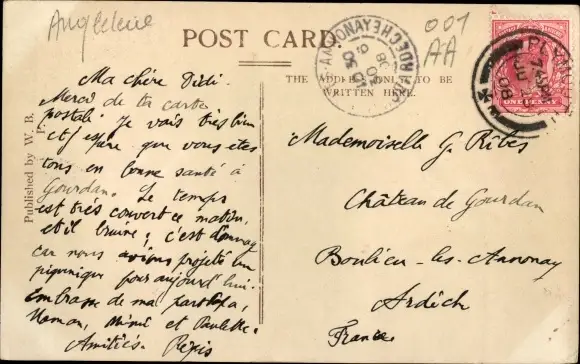 Angleterre
001
AA
POST CARD.
THE ADDRESS ONLY TO BE
WRITTEN HERE.
Published by W. B.
PLYMOUTH
08
ONE PENNY
Ma chère Didi.
Merci de ta carte
postale. Je vais très bien
et j'espère que vous êtes
tous en bonne santé à
Gourdan. Le temps
est très couvert ce matin,
et il bruine; c'est dommage
car nous avions projeté un
piquenique pour aujourd'hui.
Embrasse de ma part Papa,
Maman, Mimi et Paulette.
Amitiés.
Mademoiselle G. Ribes
Château de Gourdan
Boulieu-les-Annonay
Ardèch
France